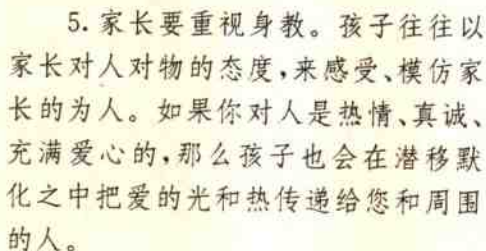 5. 家长要重视身教。孩子往往以
家长对人对物的态度,来感受、模仿家
长的为人。如果你对人是热情、真诚、
充满爱心的,那么孩子也会在潜移默
化之中把爱的光和热传递给您和周围
的人。